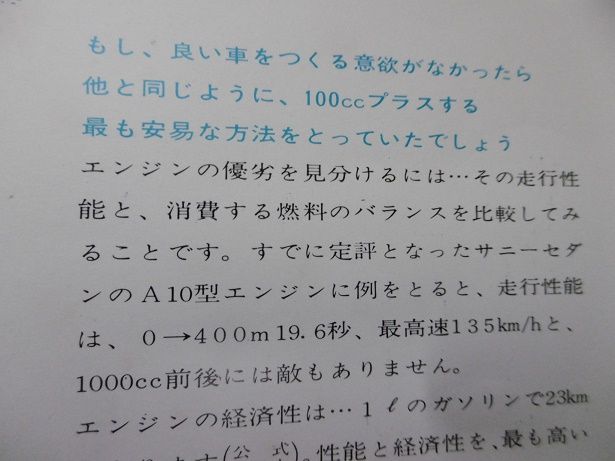 もし、良い車をつくる意欲がなかったら
他と同じように、100ccプラスする
最も安易な方法をとっていたでしょう
エンジンの優劣を見分けるには…その走行性
能と、消費する燃料のバランスを比較してみ
ることです。すでに定評となったサニーセダ
ンのA10型エンジンに例をとると、走行性能
は、0→400m19.6秒、最高速135km/hと、
1000cc前後には敵もありません。
エンジンの経済性は…1ℓのガソリンで23km
ます(公式)。性能と経済性を、最も高い